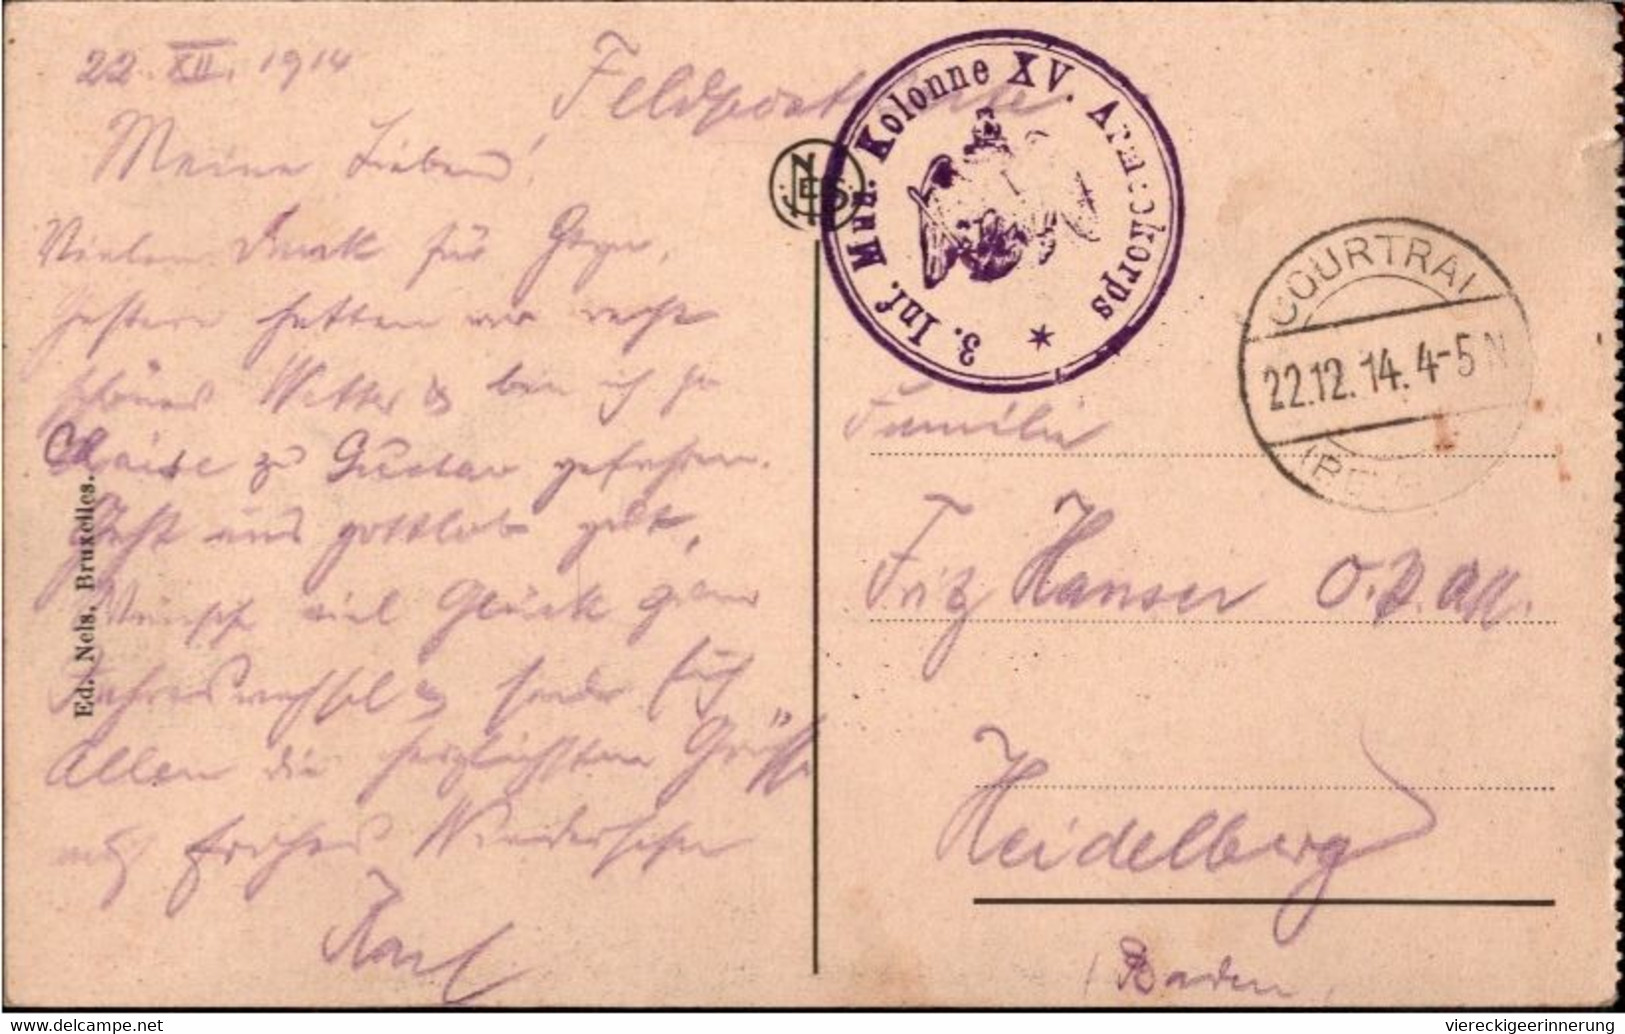 22. XII. 1914
Feldpostkarte
Meine Lieben!
Vielen Dank für
Gestern hatten wir recht
schönes Wetter & bin ich per
Chaise zu Gustav gefahren.
Geht uns gottlob gut,
Wünsche viel Glück zum
Jahreswechsel & sende Euch
Allen die herzlichsten Grüße
auf frohes Wiedersehen
Karl
Ed. Nels, Bruxelles.
NELS
3. Inf. Mun. Kolonne XV. Armeekorps
COURTRAI
22.12.14. 4-5 N
Familie
Fritz Hanser
Heidelberg
(Baden
delcampe.net
viereckigeerinnerung